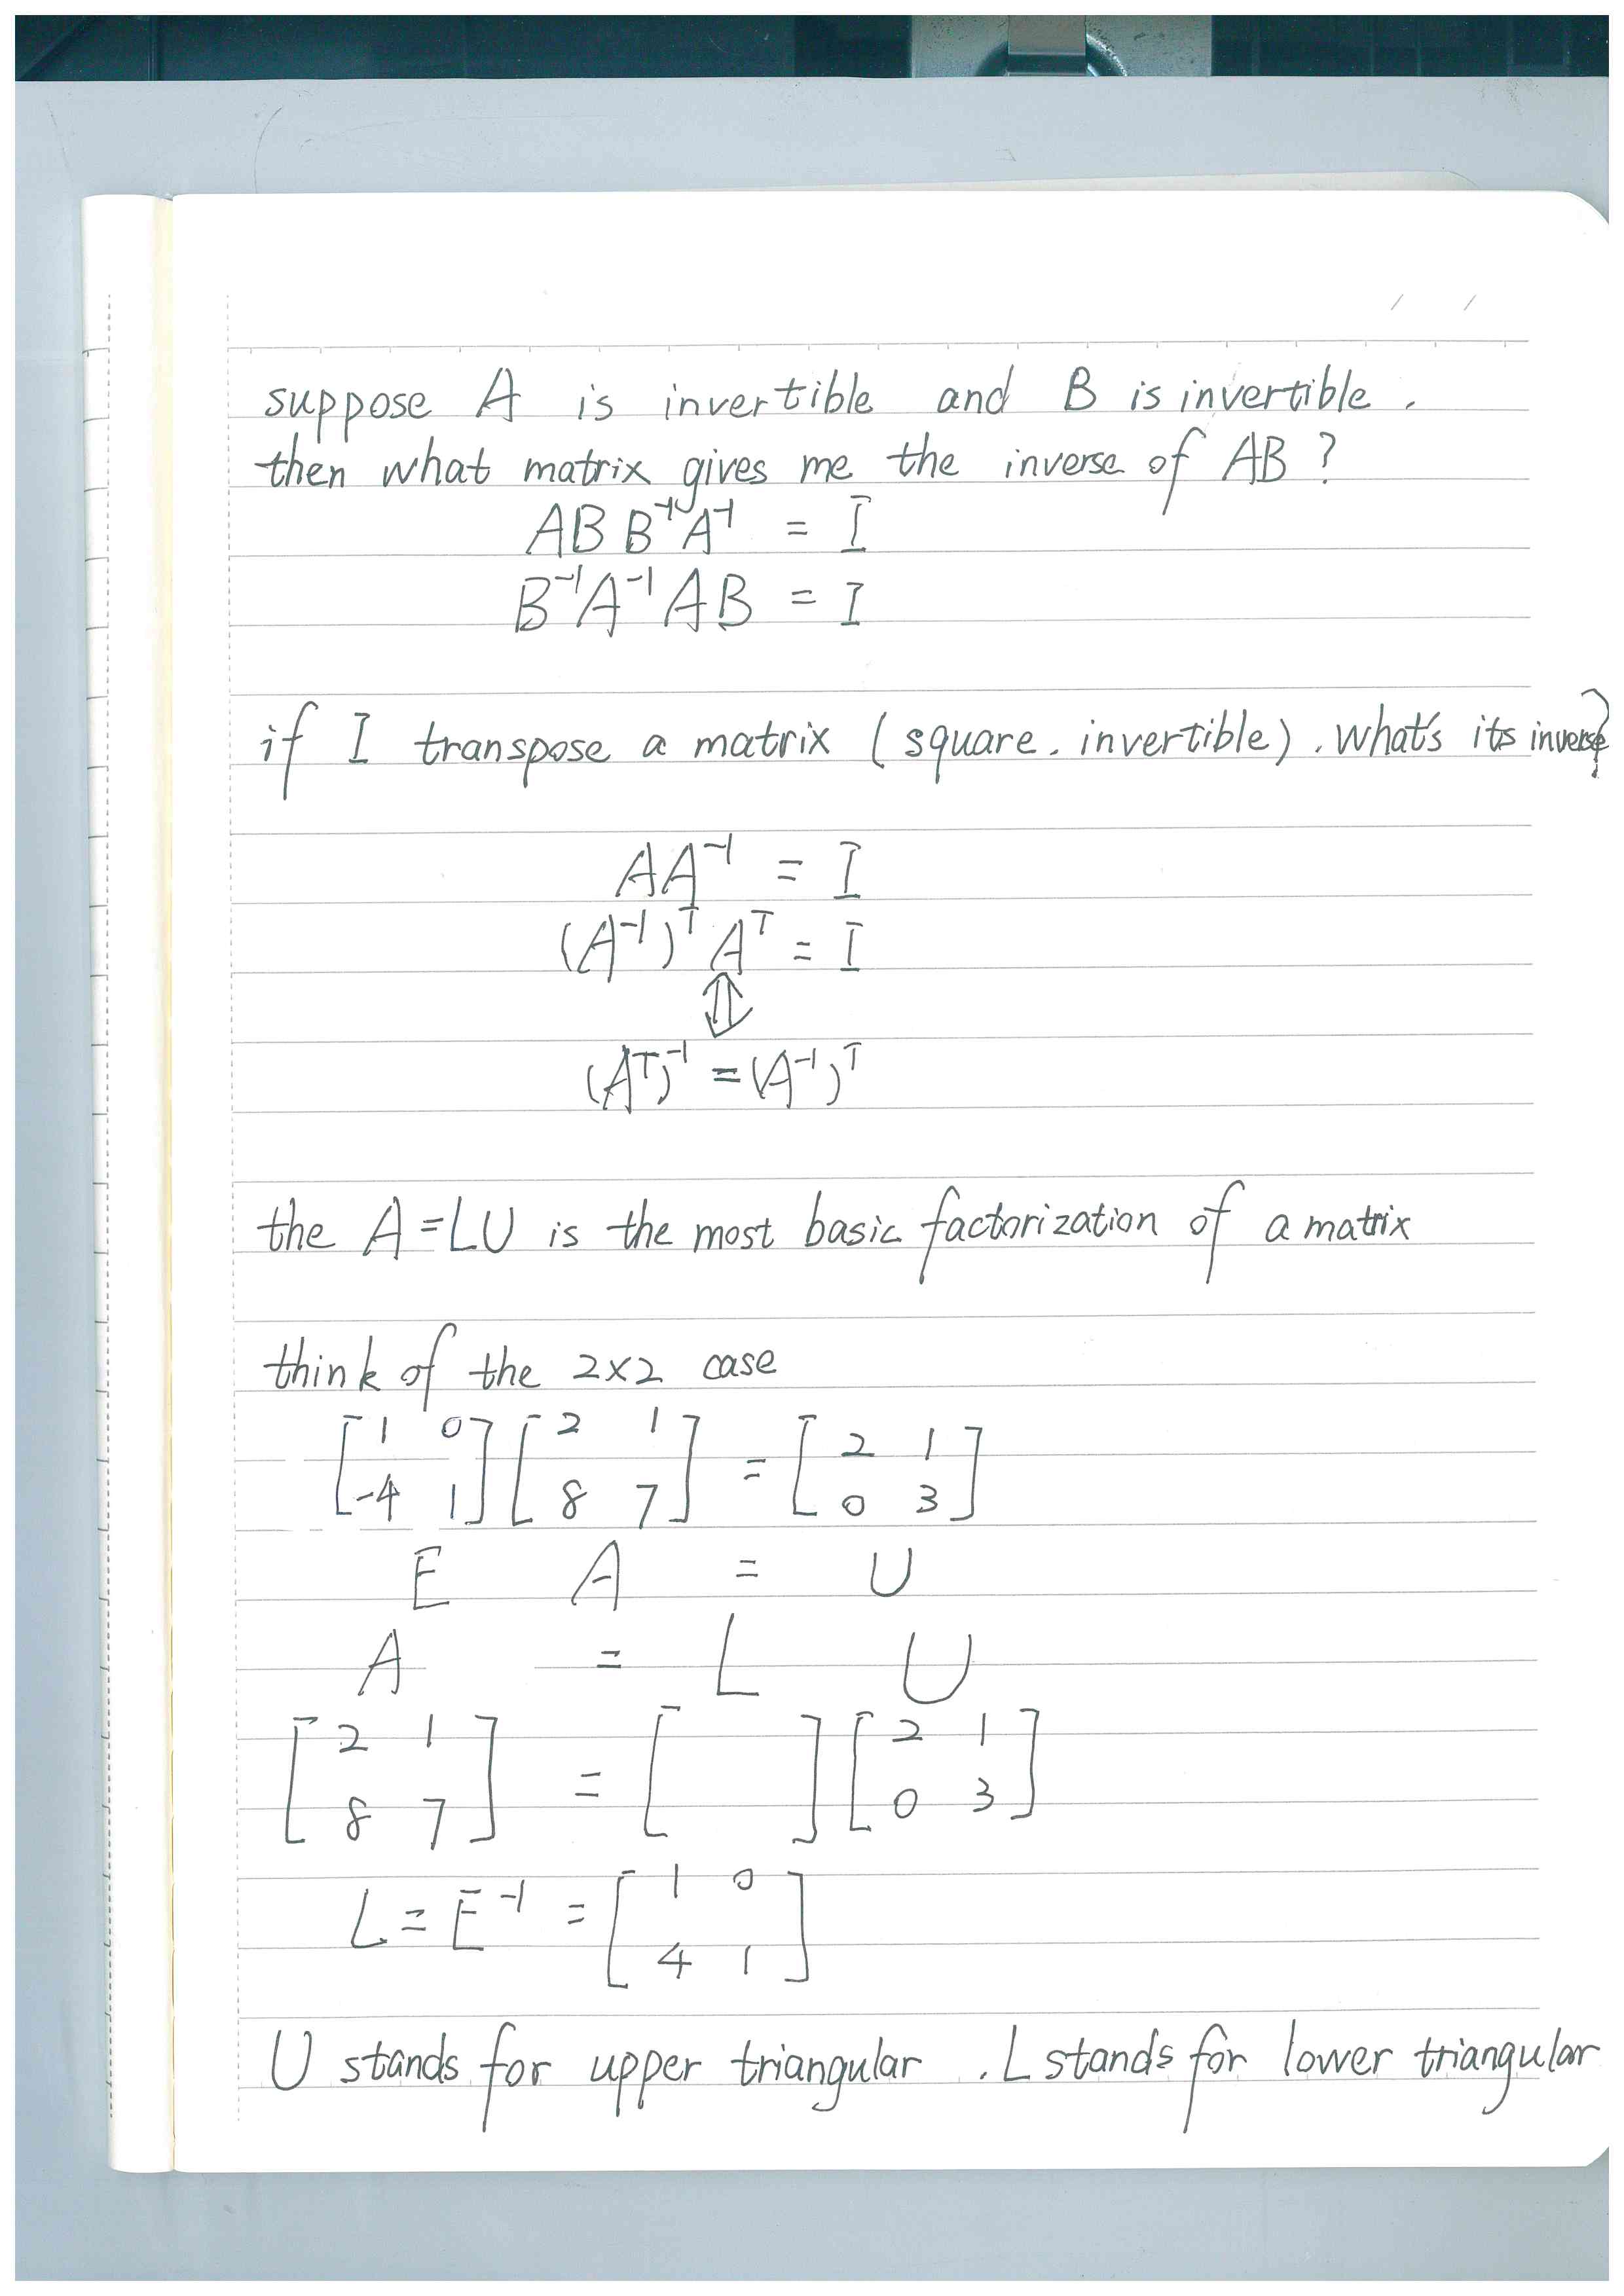 suppose A is invertible and B is invertible.
then what matrix gives me the inverse of AB ?
A B B⁻¹A⁻¹ = I
B⁻¹A⁻¹ A B = I
if I transpose a matrix ( square. invertible ). what's its inverse?
AA⁻¹ = I
(A⁻¹)ᵀ Aᵀ = I
⇕
(Aᵀ)⁻¹ = (A⁻¹)ᵀ
the A = LU is the most basic factorization of a matrix
think of the 2×2 case
[ 1 0 ] [ 2 1 ] = [ 2 1 ]
[ -4 1 ] [ 8 7 ] [ 0 3 ]
E A = U
A = L U
[ 2 1 ] = [ ] [ 2 1 ]
[ 8 7 ] [ ] [ 0 3 ]
L = E⁻¹ = [ 1 0 ]
[ 4 1 ]
U stands for upper triangular . L stands for lower triangular